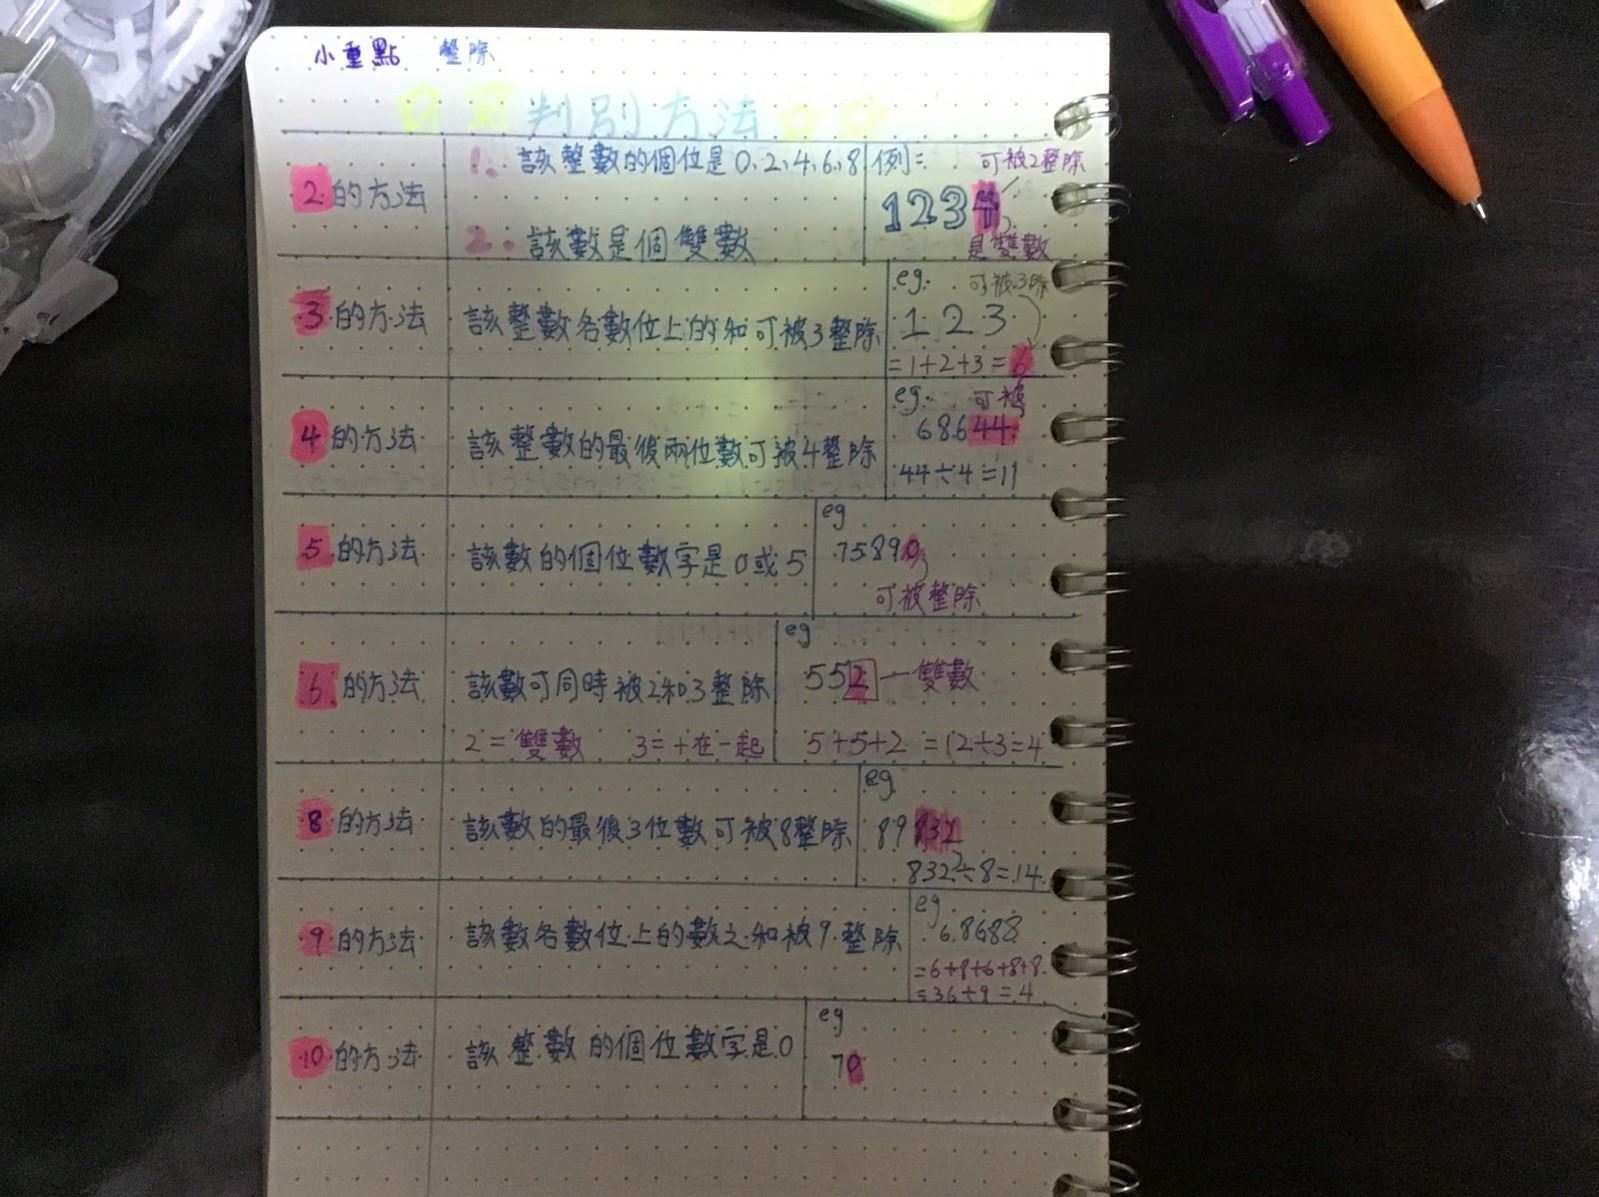 小重點 整除
判別方法
2的方法
1. 該整數的個位是0、2、4、6、8
2. 該數是個雙數
例: 可被2整除
1234
是雙數
3的方法
該整數各數位上的和可被3整除
eg. 可被3除
123
=1+2+3=6
4的方法
該整數的最後兩位數可被4整除
eg. 可被
68644
44÷4=11
5的方法
該數的個位數字是0或5
eg
75890
可被整除
6的方法
該數可同時被2和3整除
2=雙數 3=+在一起
eg
552 — 雙數
5+5+2 =12÷3=4
8的方法
該數的最後3位數可被8整除
eg
89832
832÷8=14
9的方法
該數各數位上的數之和被9整除
eg
68688
=6+8+6+8+8
=36÷9=4
10的方法
該整數的個位數字是0
eg
70